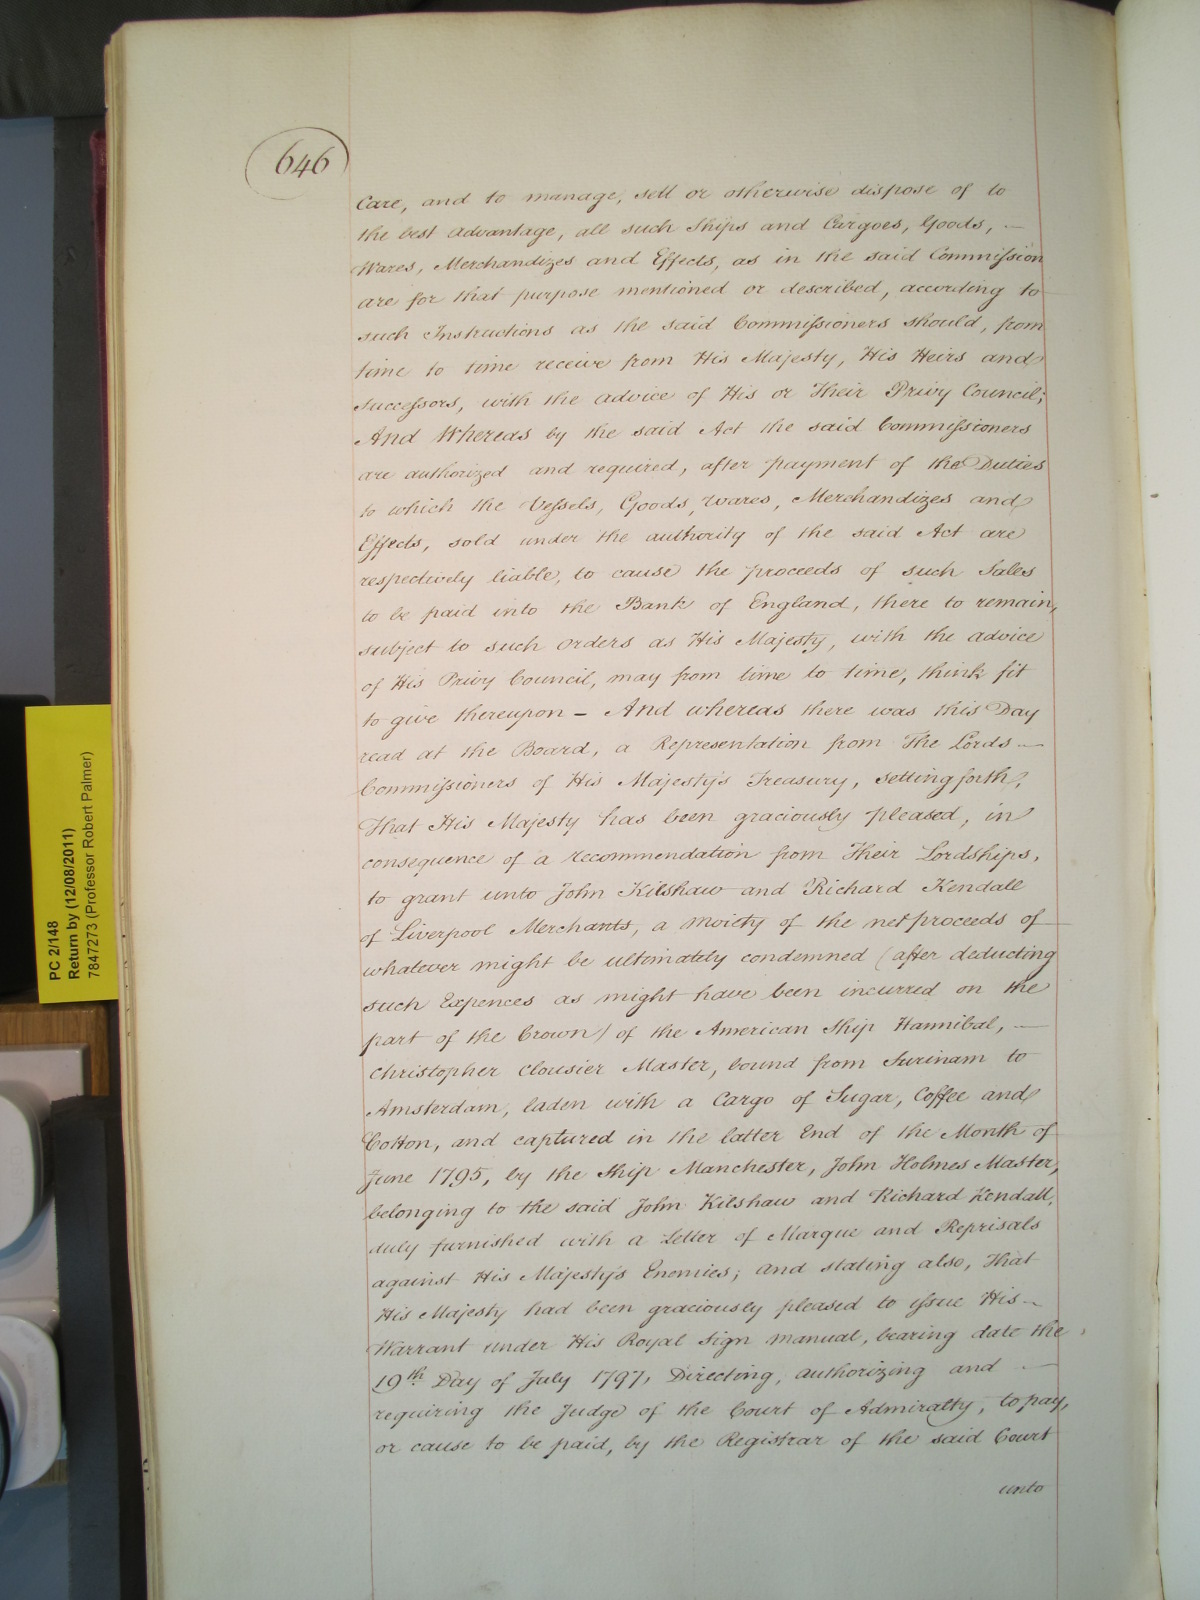 646
Care, and to manage, sell or otherwise dispose of to
the best advantage, all such Ships and Cargoes, Goods, —
Wares, Merchandizes and Effects, as in the said Commission
are for that purpose mentioned or described, according to
such Instructions as the said Commissioners should, from
time to time receive from His Majesty, His Heirs and
Successors, with the advice of His or Their Privy Council;
And Whereas by the said Act the said Commissioners
are authorized and required, after payment of the Duties
to which the Vessels, Goods, Wares, Merchandizes and
Effects, sold under the authority of the said Act are
respectively liable, to cause the proceeds of such Sales
to be paid into the Bank of England, there to remain,
subject to such orders as His Majesty, with the advice
of His Privy Council, may from time to time, think fit
to give thereupon – And whereas there was this Day
read at the Board, a Representation from The Lords —
Commissioners of His Majesty's Treasury, setting forth,
That His Majesty has been graciously pleased, in
consequence of a recommendation from Their Lordships,
to grant unto John Kilshaw and Richard Kendall
of Liverpool Merchants, a moiety of the net proceeds of
whatever might be ultimately condemned (after deducting
such Expences as might have been incurred on the
part of the Crown) of the American Ship Hannibal, —
Christopher Clousier Master, bound from Surinam to
Amsterdam, laden with a Cargo of Sugar, Coffee and
Cotton, and captured in the latter End of the Month of
June 1795, by the Ship Manchester, John Holmes Master,
belonging to the said John Kilshaw and Richard Kendall,
duly furnished with a Letter of Marque and Reprisals
against His Majesty's Enemies; and stating also, That
His Majesty had been graciously pleased to issue His —
Warrant under His Royal Sign manual, bearing date the
19th Day of July 1797, Directing, authorizing and —
requiring the Judge of the Court of Admiralty, to pay,
or cause to be paid, by the Registrar of the said Court
unto
PC 2/148
Return by (12/08/2011)
7847273 (Professor Robert Palmer)